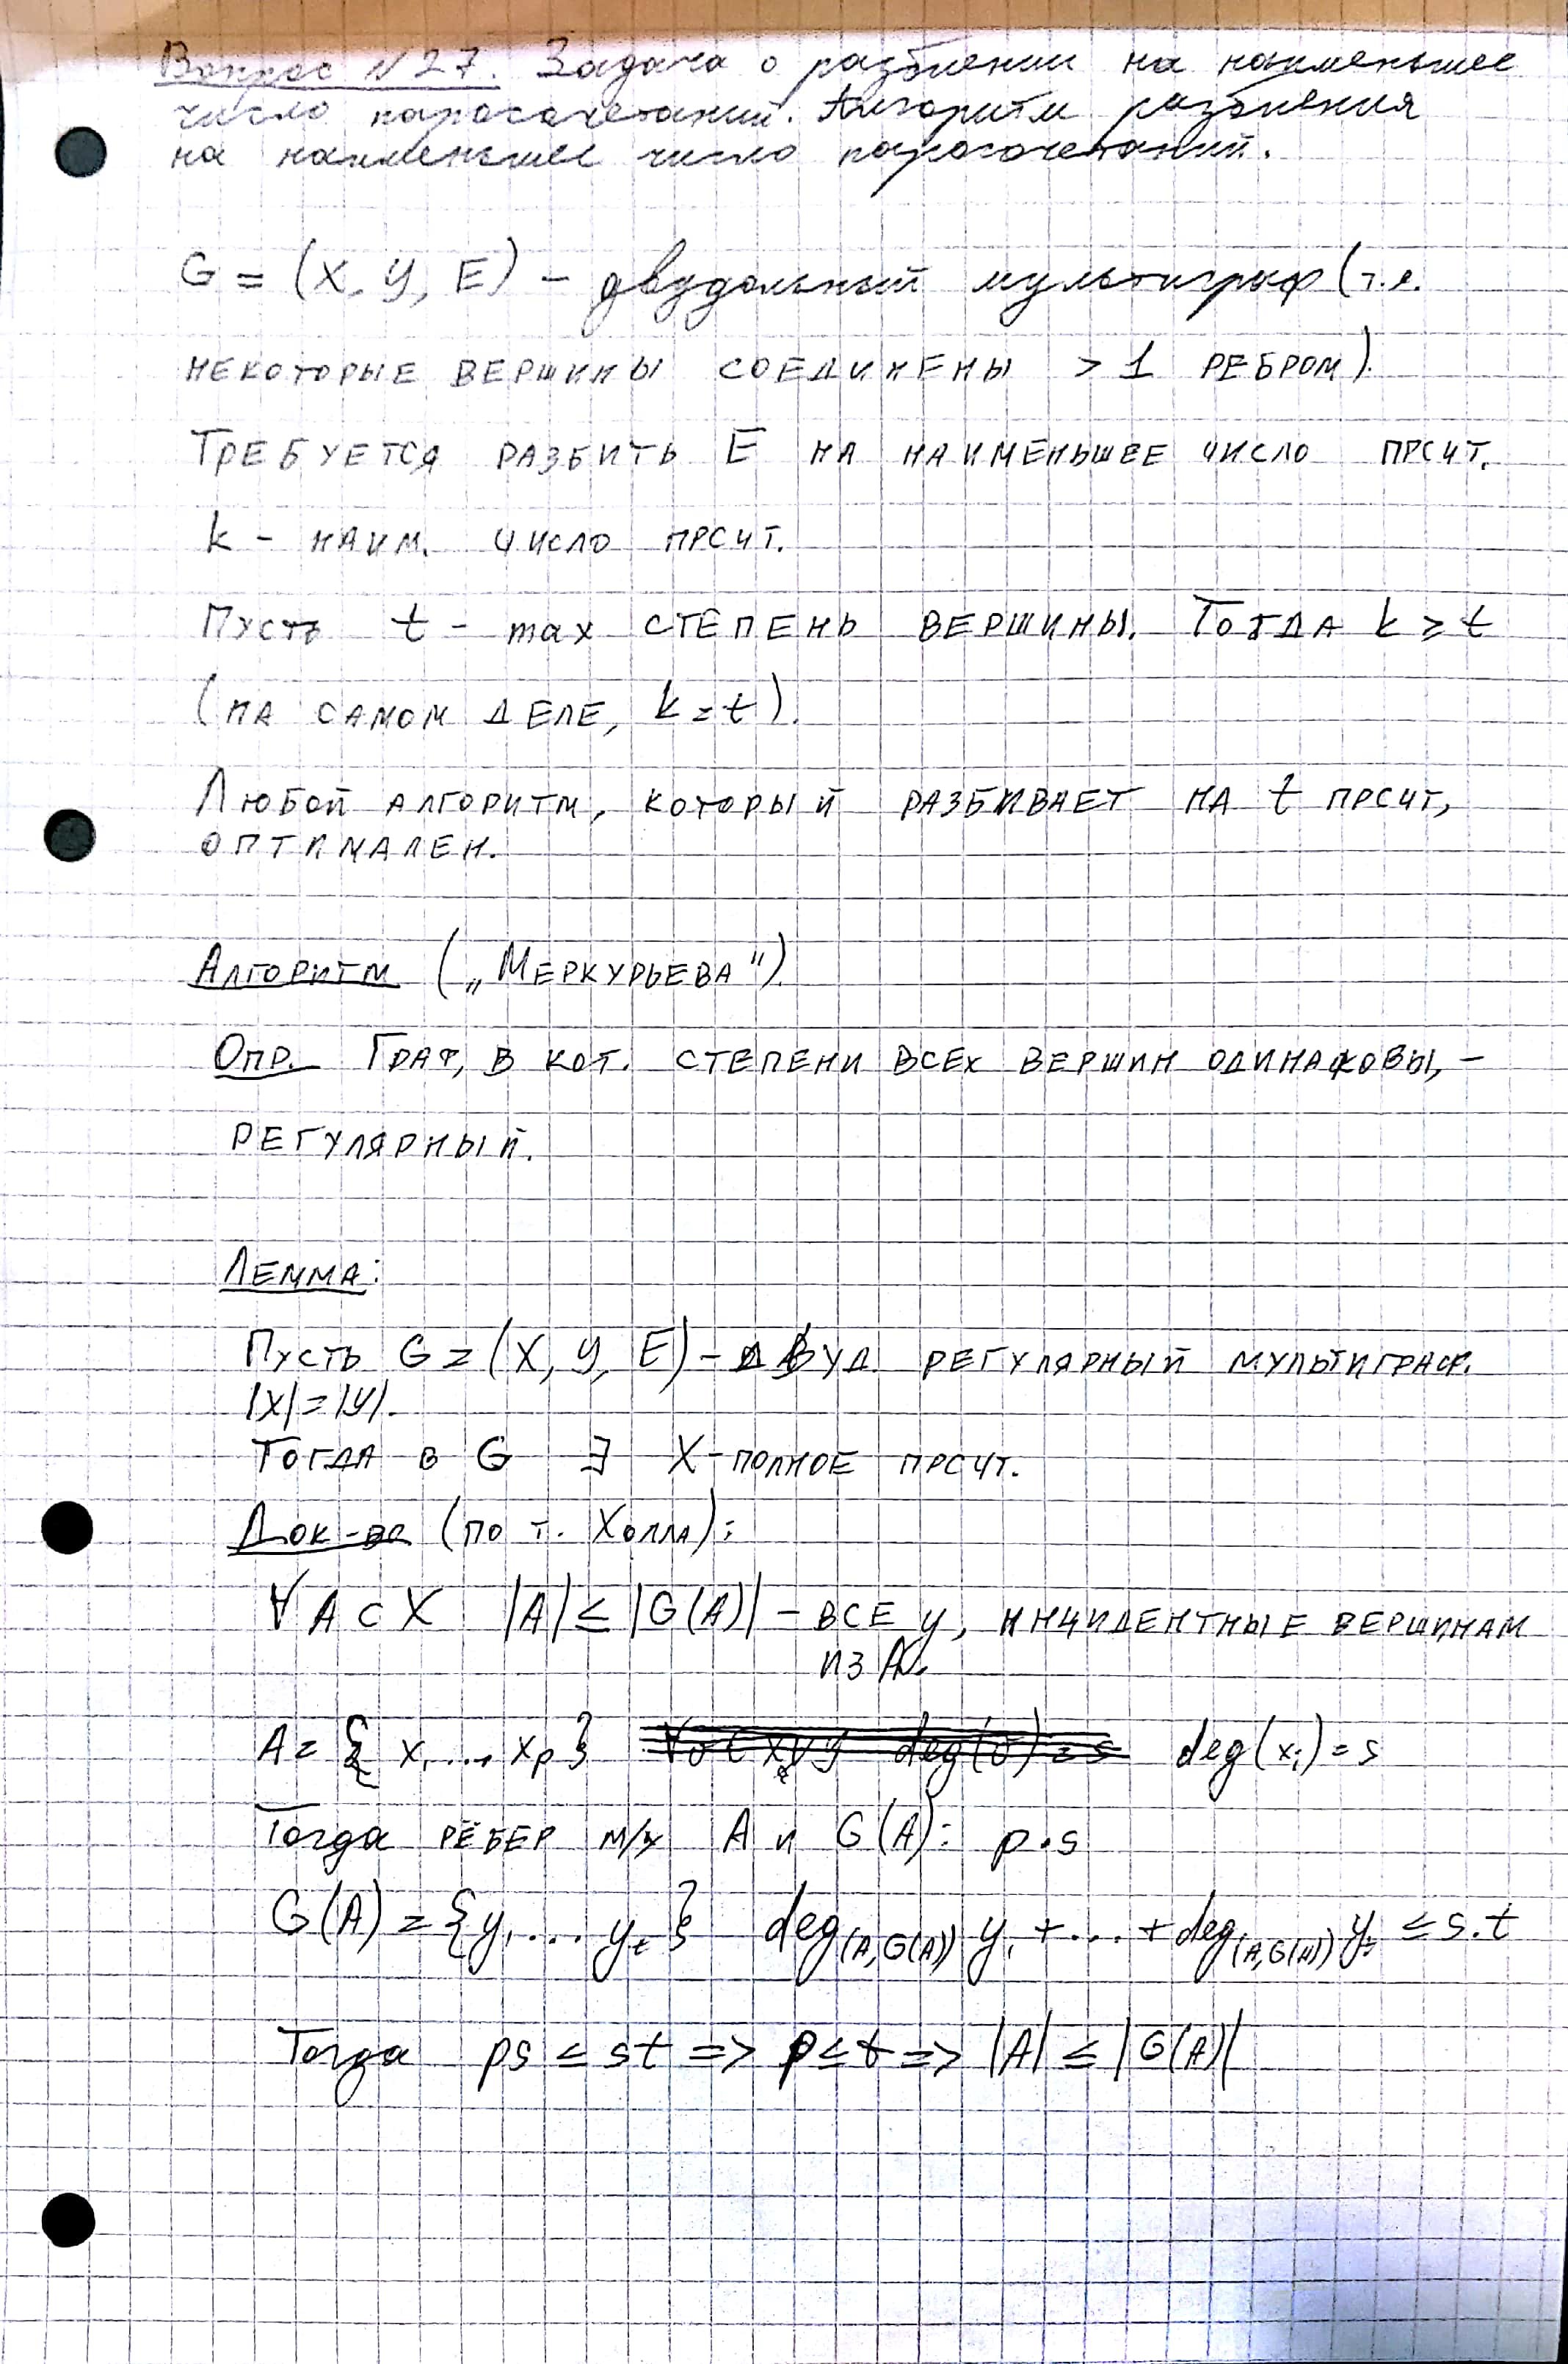 Вопрос №27. Задача о разбиении на наименьшее
число паросочетаний. Алгоритм разбиения
на наименьшее число паросочетаний.
G = (X, Y, E) – двудольный мультиграф (т.е.
НЕКОТОРЫЕ ВЕРШИНЫ СОЕДИНЕНЫ > 1 РЕБРОМ).
ТРЕБУЕТСЯ РАЗБИТЬ E НА НАИМЕНЬШЕЕ ЧИСЛО ПРСЧТ.
k – НАИМ. ЧИСЛО ПРСЧТ.
ПУСТЬ t – max СТЕПЕНЬ ВЕРШИНЫ. ТОГДА k ≥ t
(НА САМОМ ДЕЛЕ, k = t).
ЛЮБОЙ АЛГОРИТМ, КОТОРЫЙ РАЗБИВАЕТ НА t ПРСЧТ,
ОПТИМАЛЕН.
АЛГОРИТМ („МЕРКУРЬЕВА").
ОПР. ГРАФ, В КОТ. СТЕПЕНИ ВСЕХ ВЕРШИН ОДИНАКОВЫ, –
РЕГУЛЯРНЫЙ.
ЛЕММА:
ПУСТЬ G = (X, Y, E) – ДВУД. РЕГУЛЯРНЫЙ МУЛЬТИГРАФ.
|X| = |Y|.
ТОГДА В G ∃ X-ПОЛНОЕ ПРСЧТ.
ДОК-ВО (ПО Т. ХОЛЛА):
∀ A ⊂ X |A| ≤ |G(A)| – ВСЕ y, ИНЦИДЕНТНЫЕ ВЕРШИНАМ
ИЗ A.
A = { x₁ ... xₚ } deg(xᵢ) = s
Тогда РЁБЕР М/У A И G(A): p·s
G(A) = {y₁ ... yₜ} deg₍A,G(A)₎ y₁ + ... + deg₍A,G(A)₎ yₜ ≤ s·t
Тогда ps ≤ st => p ≤ t => |A| ≤ |G(A)|